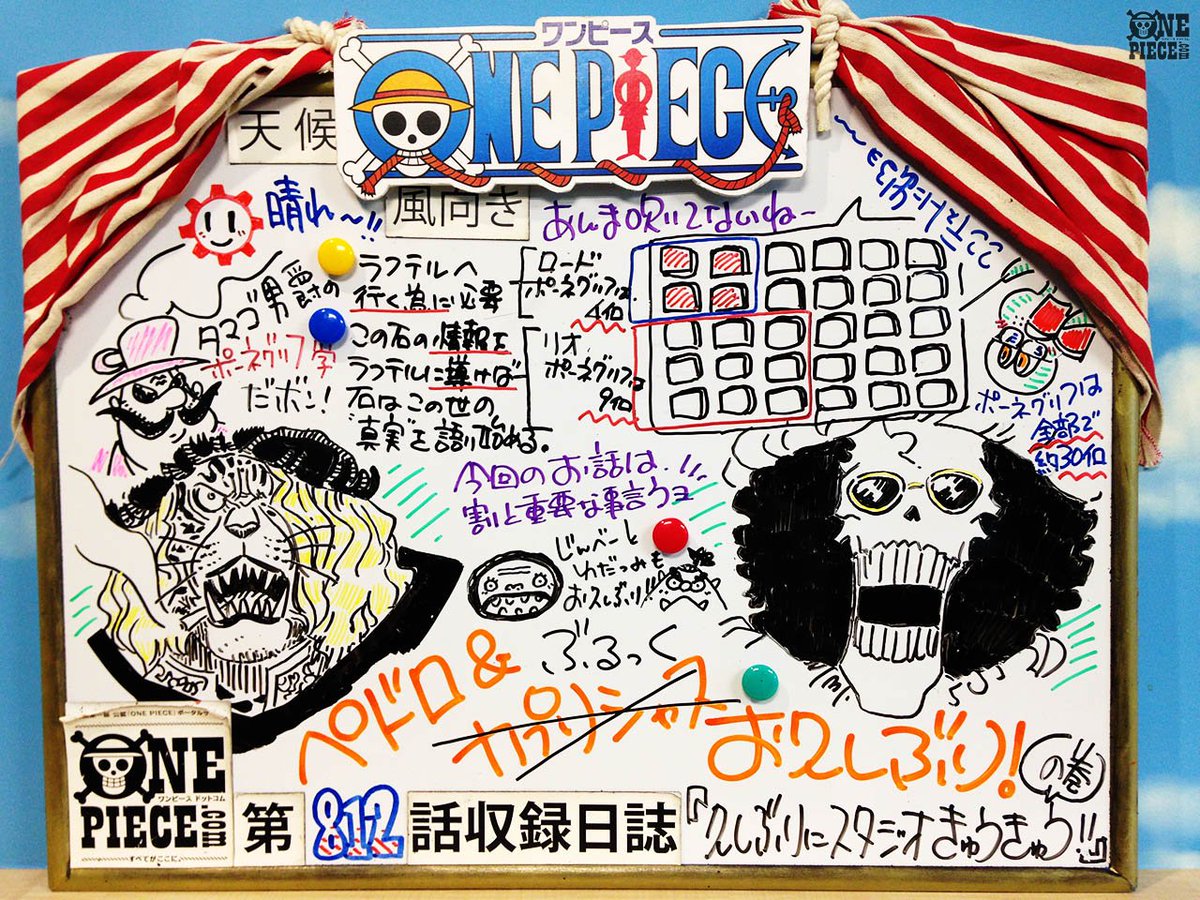 ワンピース
ONE PIECE
ONE PIECE.com
天候
晴れ〜!!
風向き
あんま吹いてないねー
タマゴ男爵の
ポーネグリフ学
だボン!
ラフテルへ
行く為に必要
ロード
ポーネグリフは
4コ
この石の情報を
ラフテルに導けば
石はこの世の
"真実"を語り始める。
リオ
ポーネグリフは
9コ
ポーネグリフは
全部で
約30コ
今回のお話は!!
割と重要な事言うヨ
じんべーと
わだつみも
お久しぶり!!
ペドロ&
ぶるっく
カプリシャス
お久しぶり!
の巻
ONE PIECE.com
ワンピース ドットコム
すべてがここに。
第812話収録日誌
『久しぶりにスタジオきゅうきゅう!!』